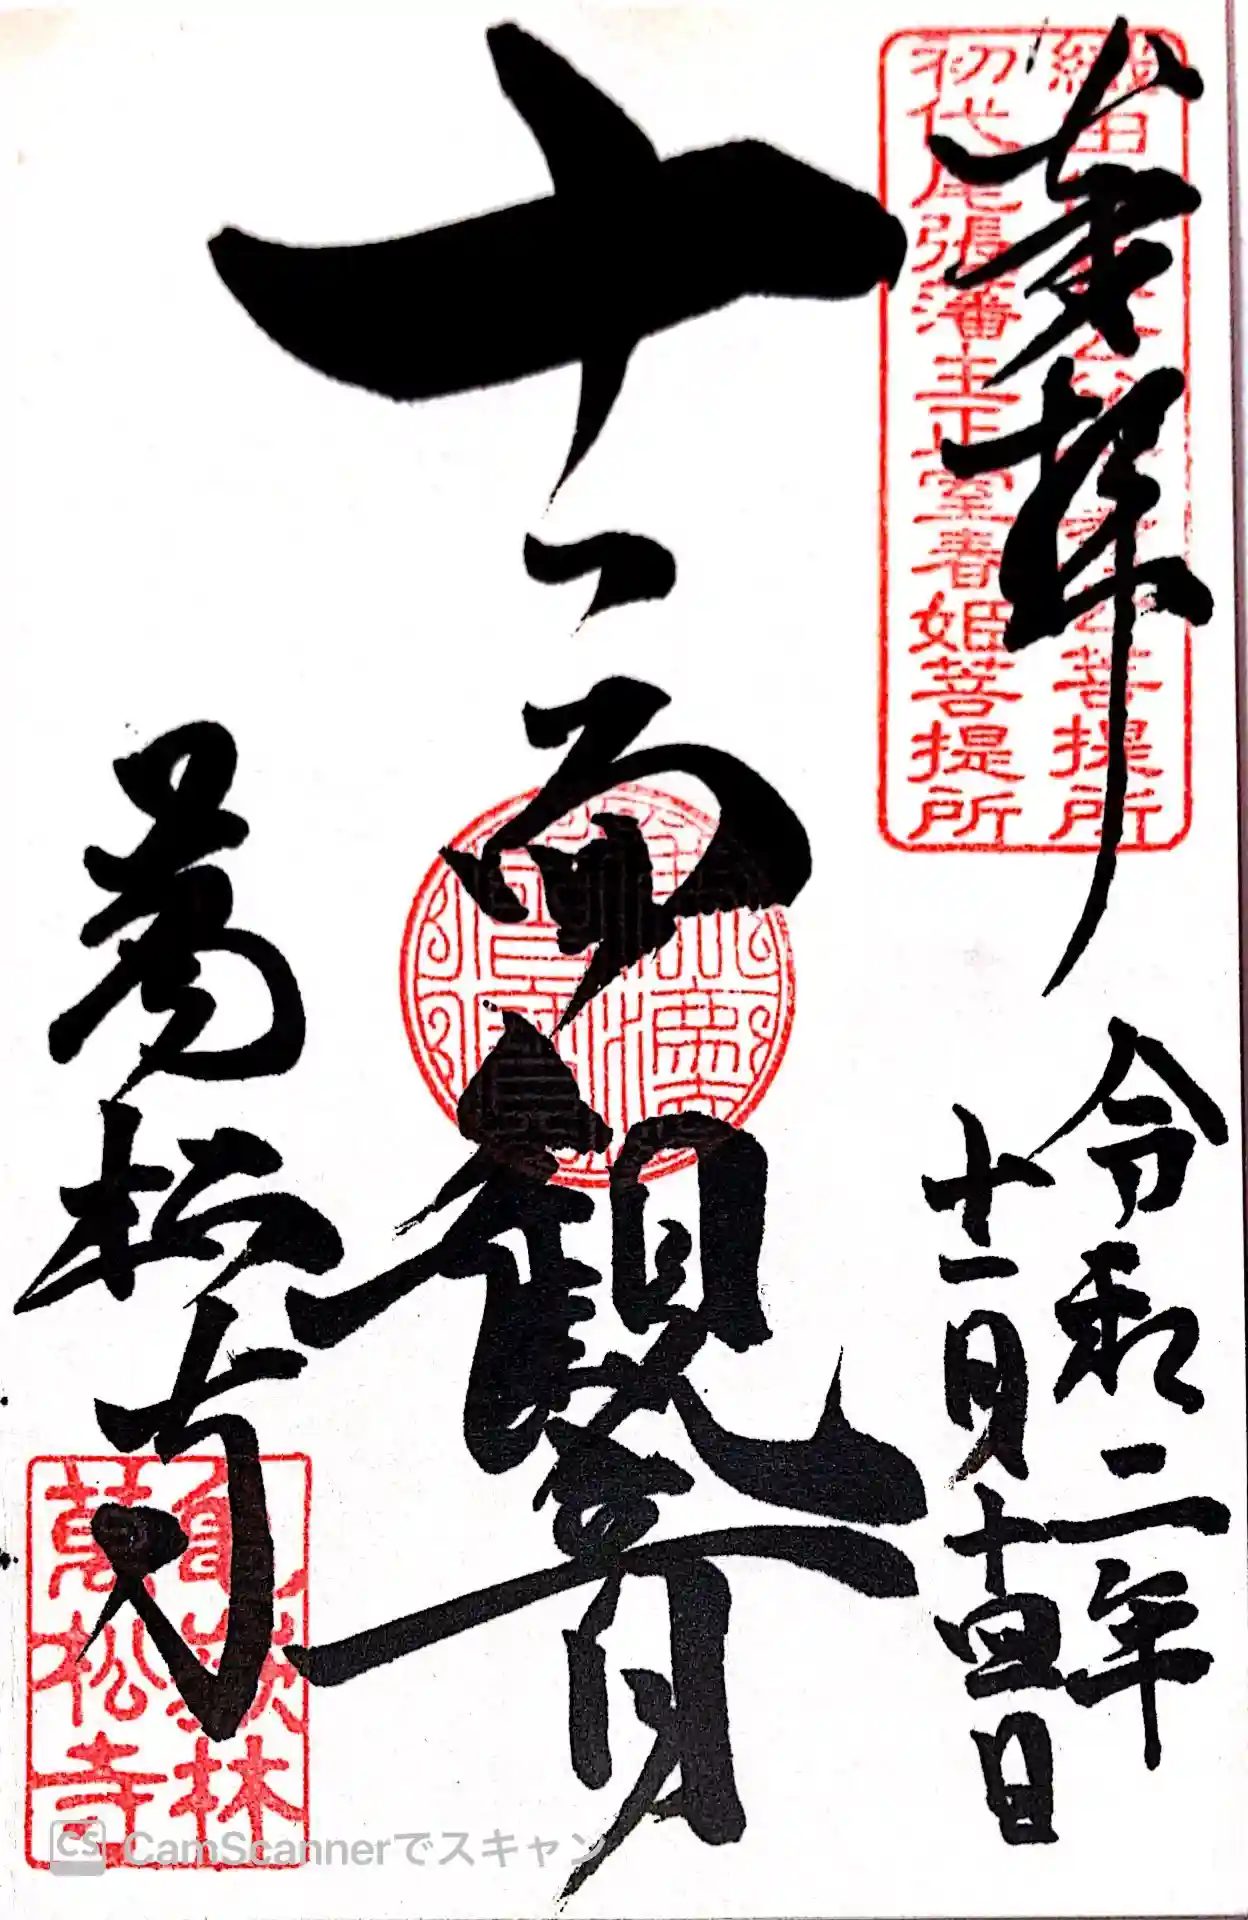 奉拝
令和二年
十一月十四日
初代尾張藩主正室春姫菩提所
菩提所
十一面観音
萬松寺
亀嶽林
萬松寺
CamScannerでスキャン